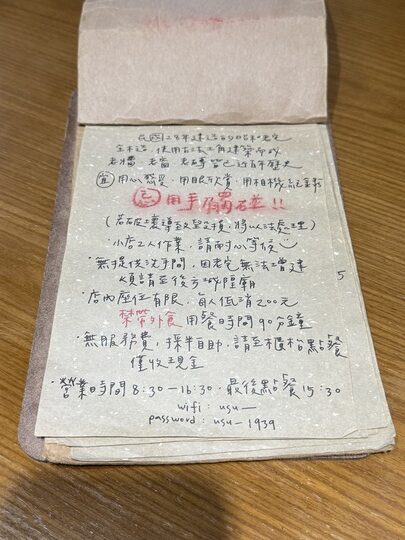 民國28年建造的昭和老宅
全木造 使用古法工角建築而成
老牆、老窗、老磚皆已近百年歷史
宜 用心感受、用眼欣賞、用相機記錄
忌 用手觸碰!!
(若破壞導致毀損,將以法處理)
小店2人作業,請耐心等候
·無提供洗手間,因老宅無法增建
煩請至後方城隍廟
·店內座位有限,每人低消200元
禁帶外食 用餐時間90分鐘
·無服務費,採半自助,請至櫃枱點餐
僅收現金
·營業時間8:30-16:30·最後點餐15:30
wifi: usu—
password: usu-1939
5